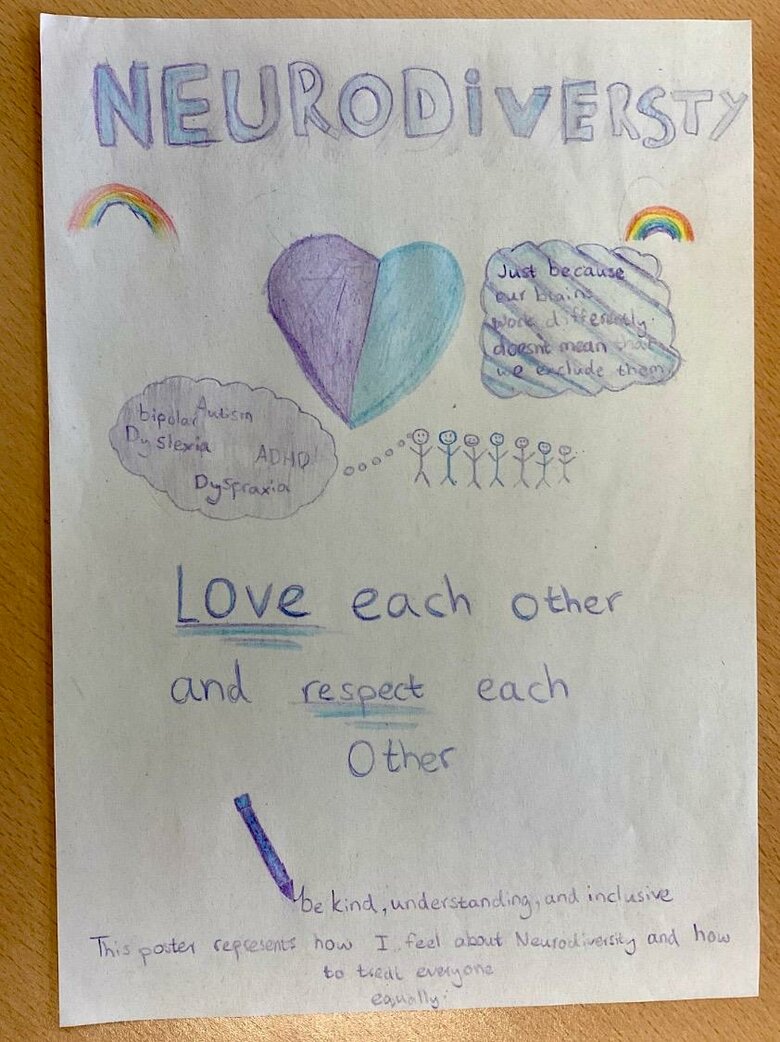 NEURODiVERSTY
Just because
our brains
work differently
doesnt mean that
we exclude them
bipolar Autism
Dyslexia
ADHD
Dyspraxia
Love each other
and respect each
Other
be kind, understanding, and inclusive
This poster represents how I feel about Neurodiversity and how
to treat everyone
equally.